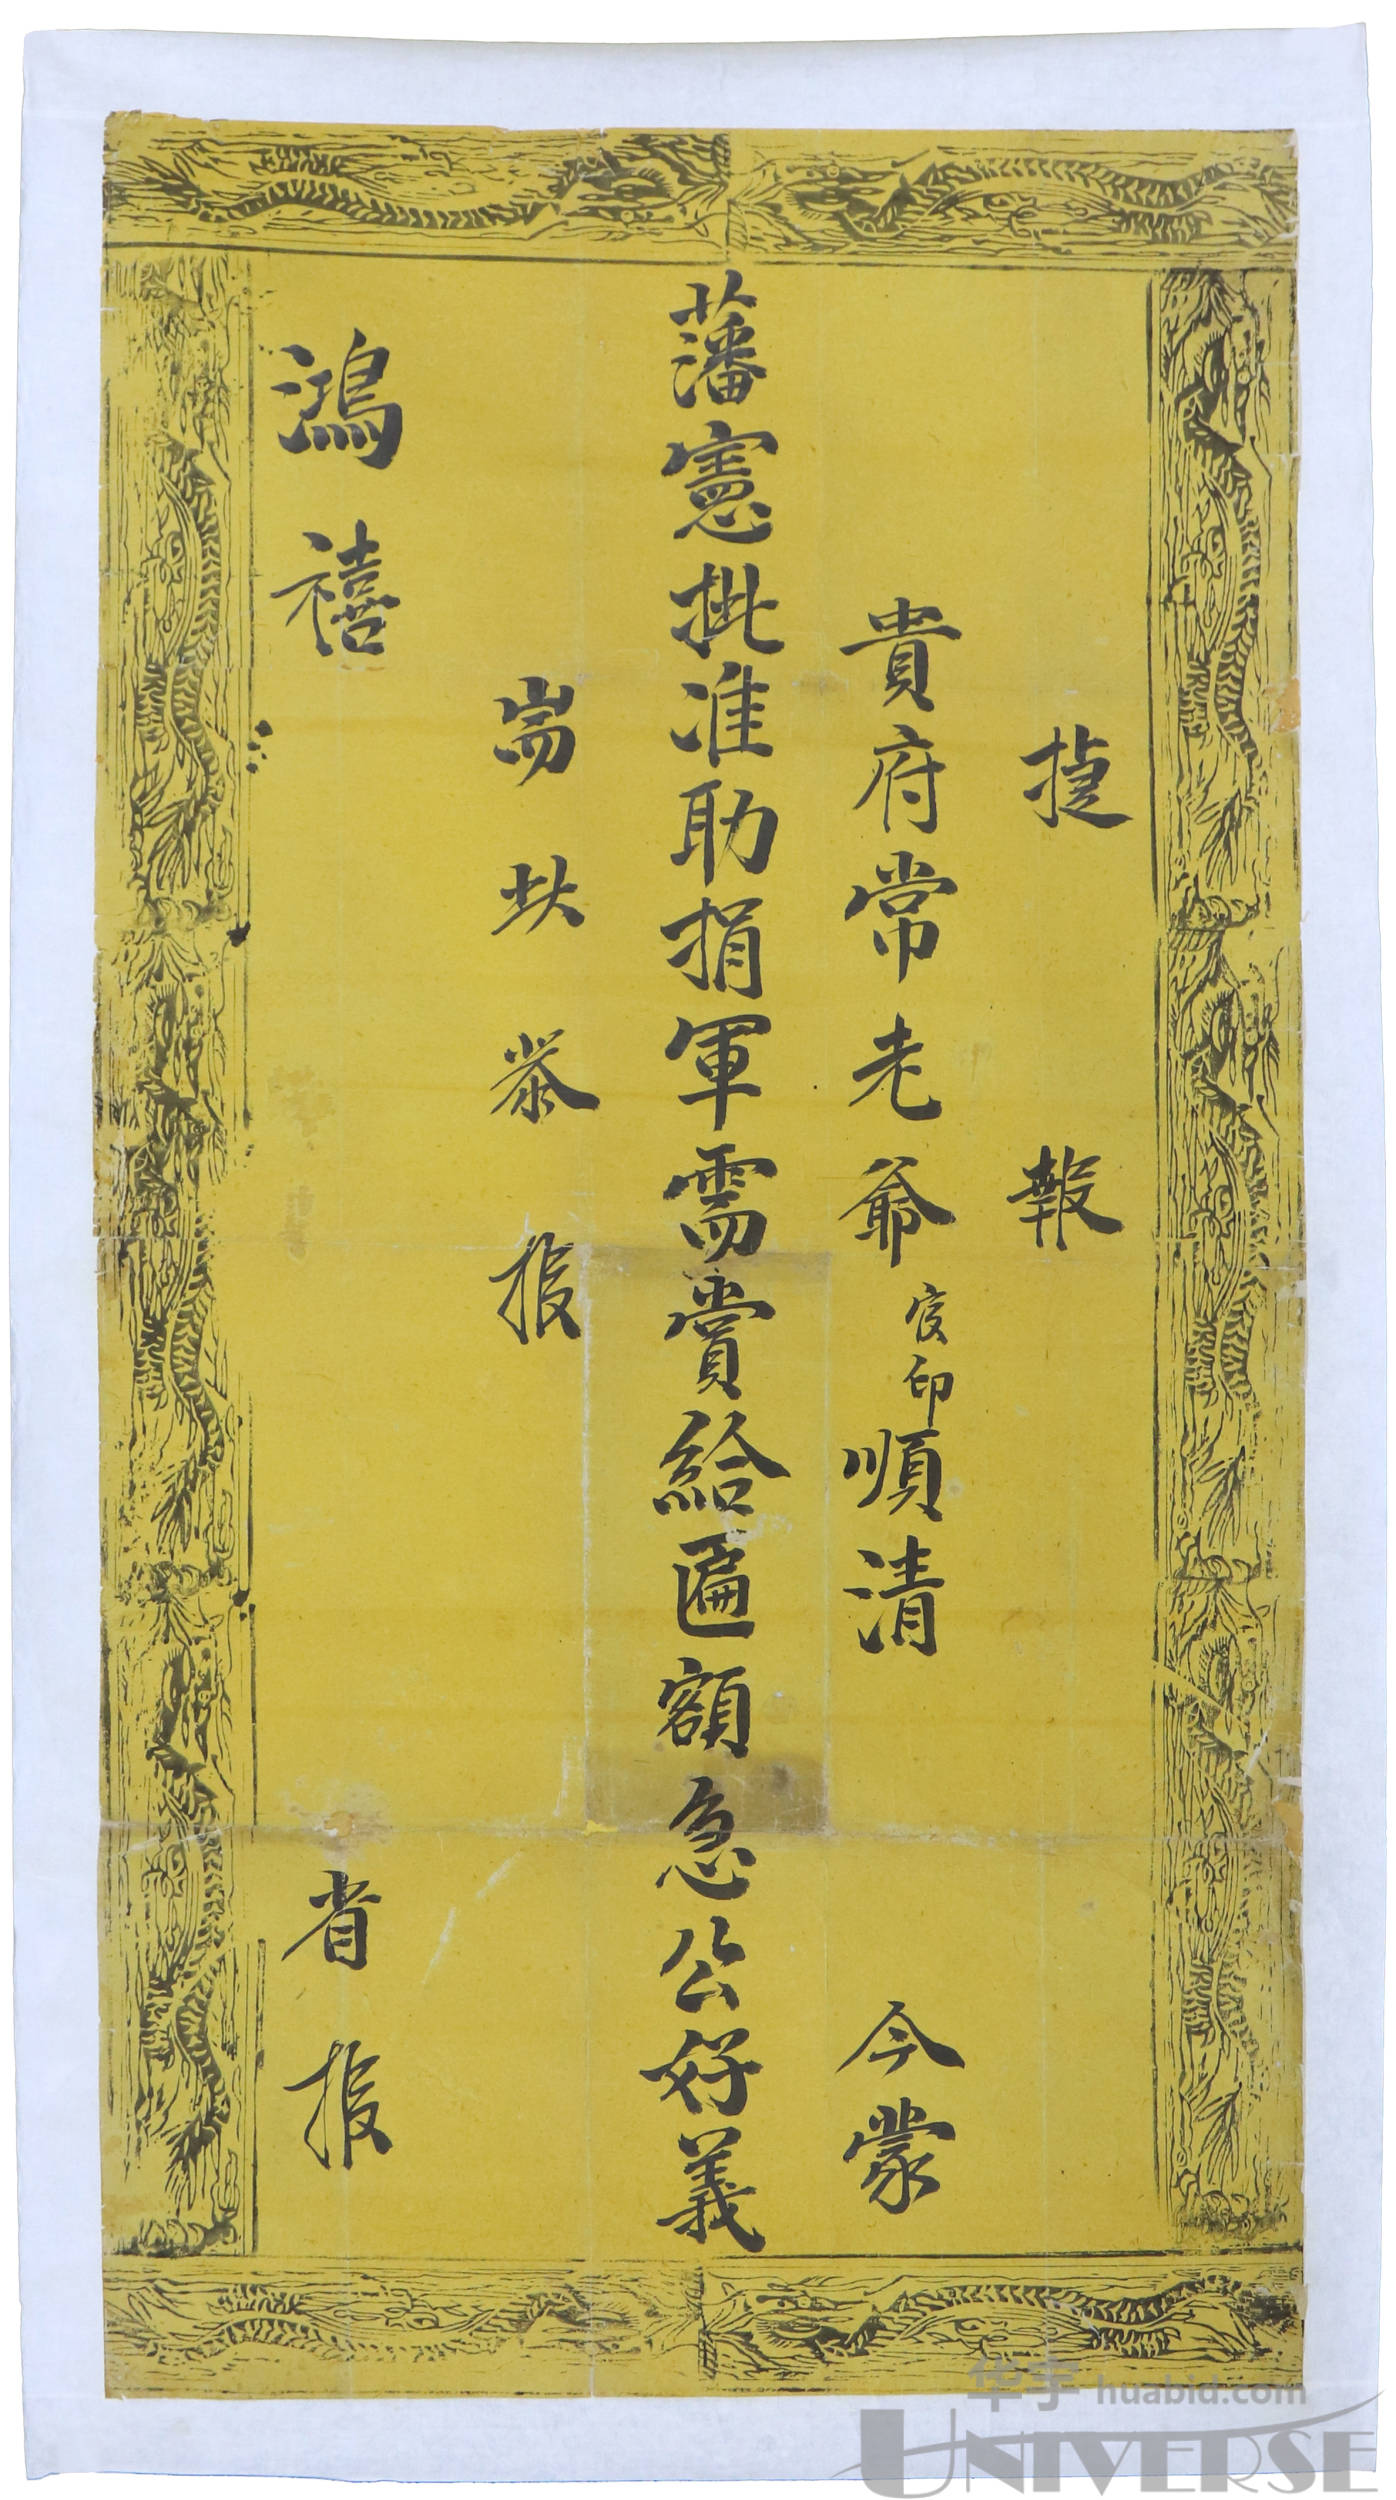 捷報
貴府常老爺官印順清 今蒙
藩憲批准助捐軍需賞給匾額急公好義
耑此恭报
鴻禧 省报
华宇 huabid.com
UNIVERSE